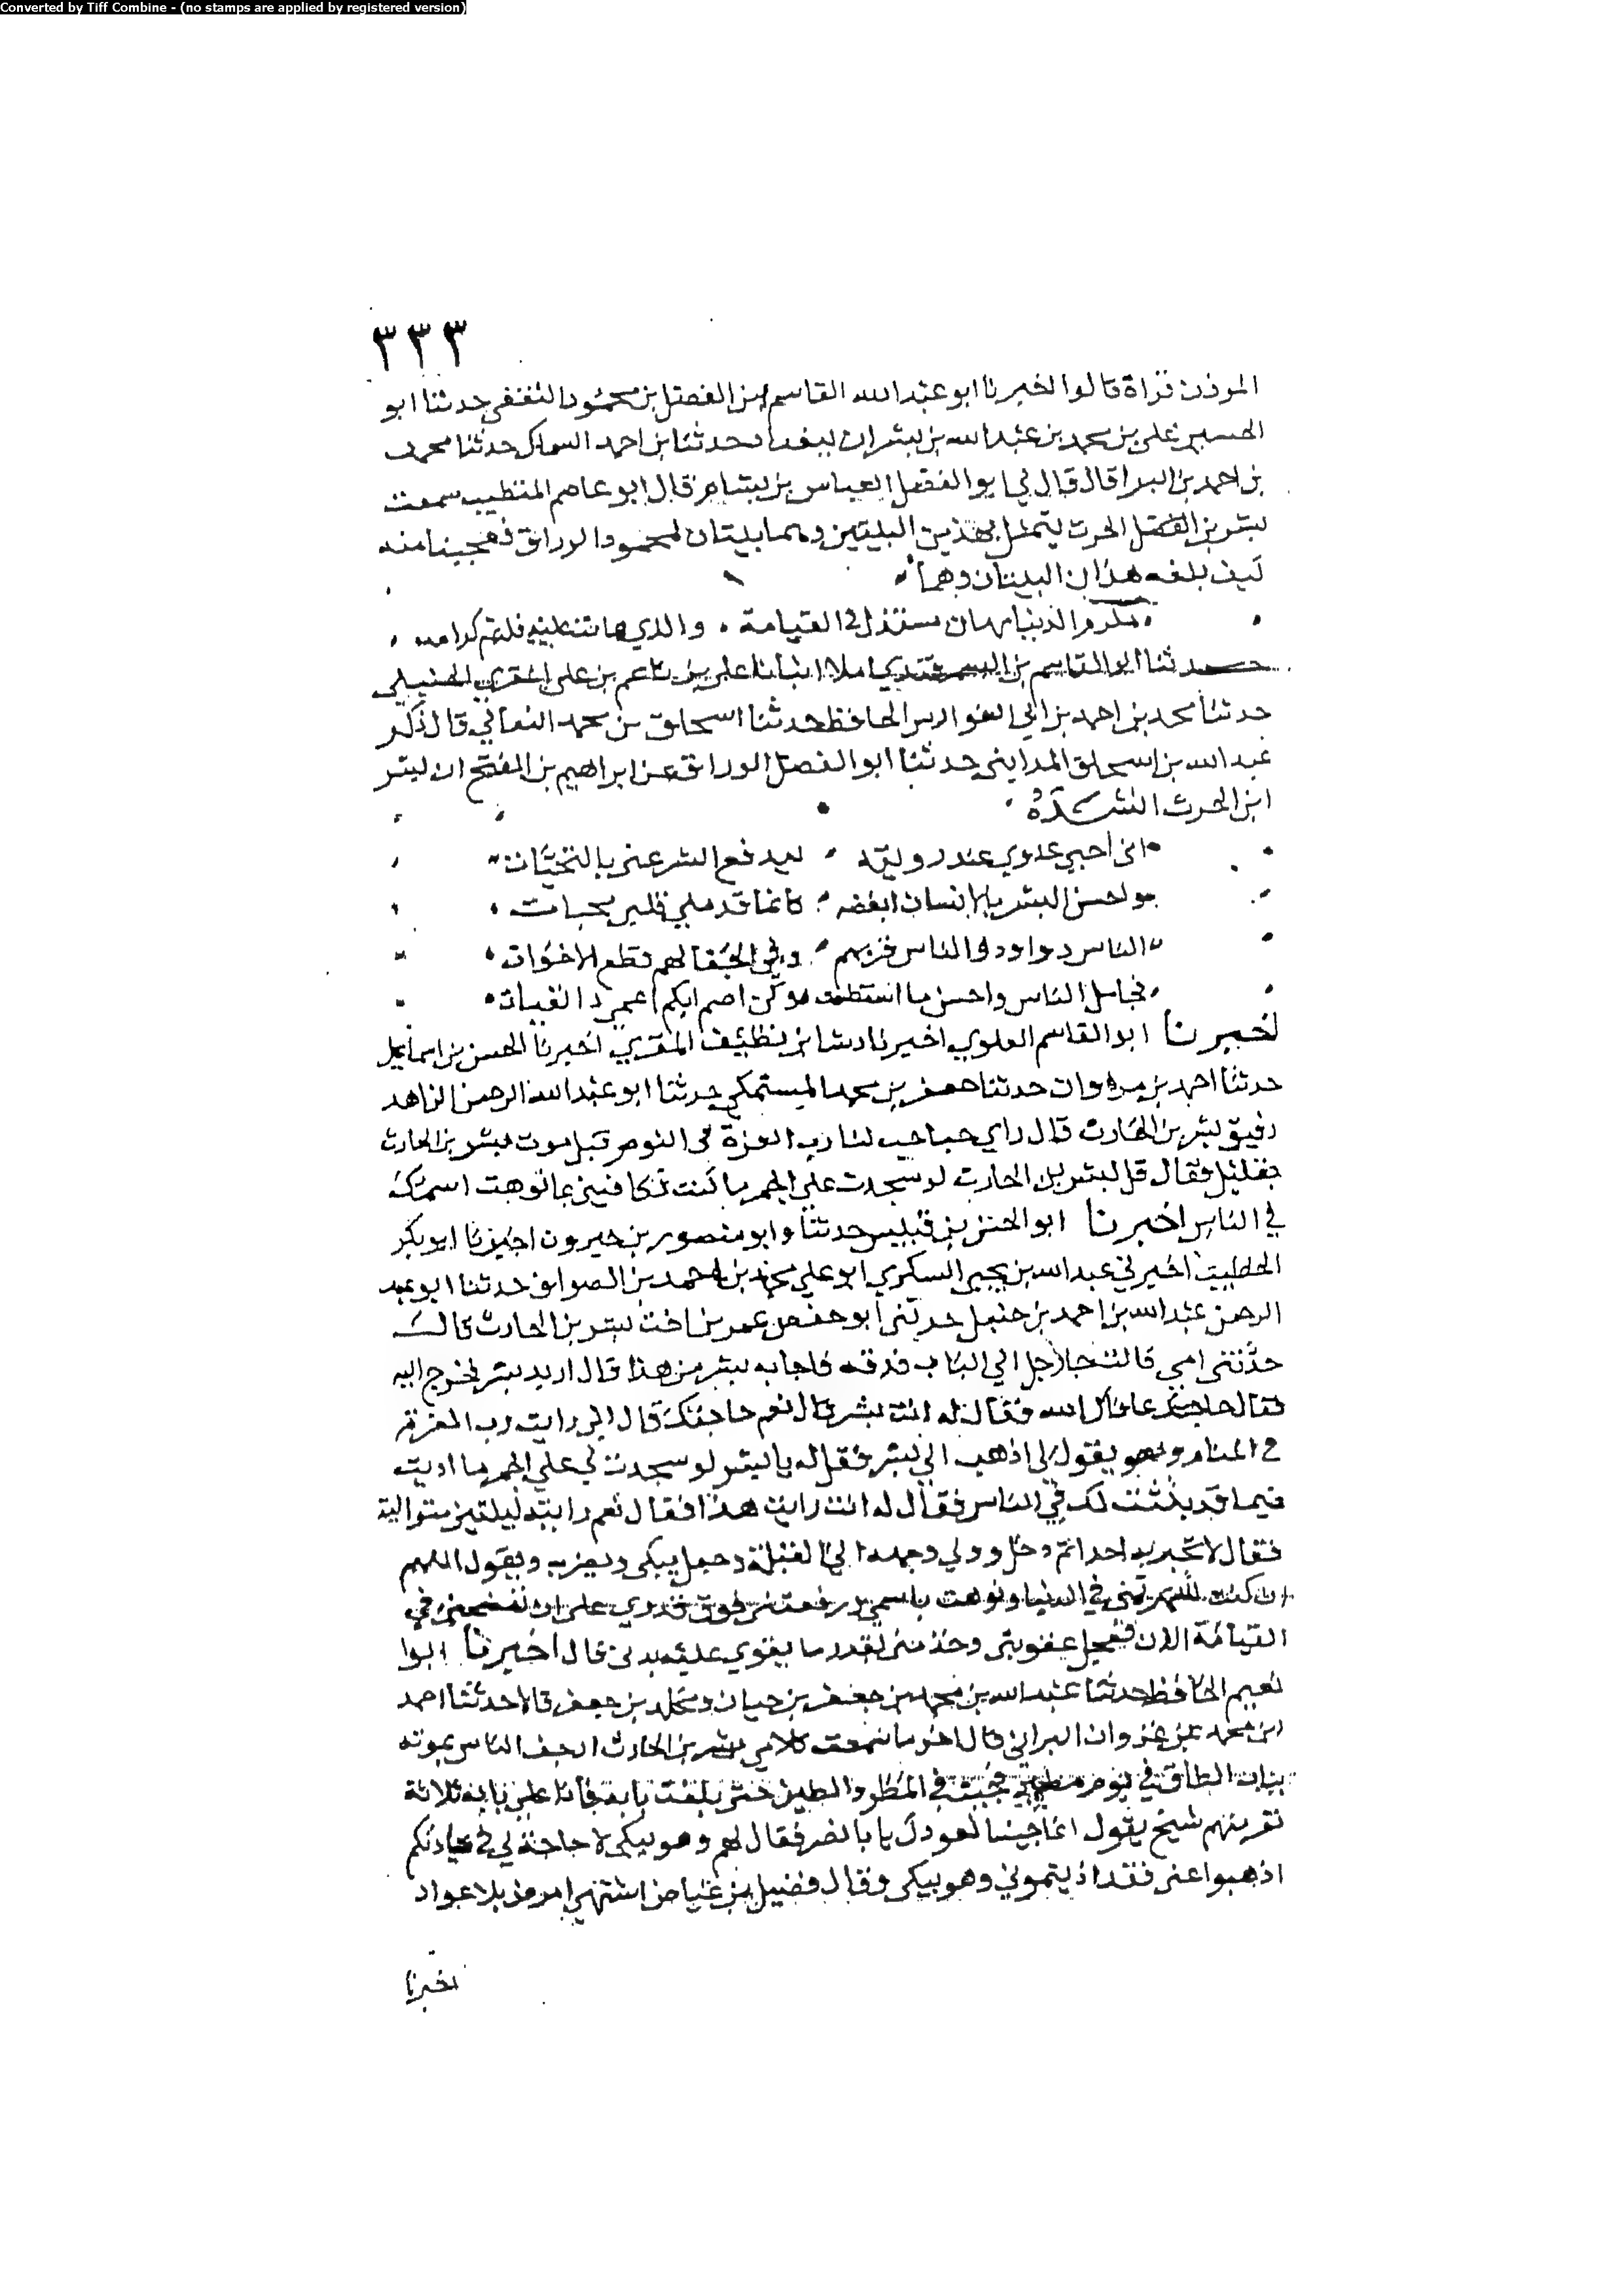 Converted by Tiff Combine - (no stamps are applied by registered version)
٣٣٣
الموذن قراة قالوا اخبرنا ابو عبد الله القاسم بن الفضل بن محمود الثقفي حدثنا ابو
الحسين علي بن محمد بن عبد الله بن بشران ببغداد حدثنا بن احمد السماك حدثنا محمد
بن احمد بن البرا قال قال لي ابو الفضل العباس بن بسام قال ابو عاصم المتطبب سمعت
بشر بن الحرث يتمثل بهذين البيتين وهما بيتان لمحمود الوراق فعجبنا منه
كيف بلغه هذان البيتان وهما
مكرم الدنيا مهان مستذل في القيامة والذي هانت عليه فله ثم كرامه
حدثنا ابو القاسم بن السمرقندي املا انبانا علي بن علي المقري الحنبلي
حدثنا محمد بن احمد بن ابي الفوارس الحافظ حدثنا اسحاق بن محمد النعالي قال ذكر
عبد الله بن اسحاق المدايني حدثنا ابو الفضل الوراق عن ابراهيم بن المفتح ان بشر
ابن الحرث انشده
اني احيي عدوي عند رويته ليدفع الشر عني بالتحيات
واحسن البشر بالانسان ابغضه كانما قد ملي قلبي محبات
الناس دا ودوا الناس قربهم وفي الجفا لهم قطع الاخوات
فجامل الناس واحسن ما استطعت وكن اصم ابكم اعمى ذا تقيات
اخبرنا ابو القاسم العلوي اخبرنا رشا بن نظيف المقري اخبرنا الحسن بن اسماعيل
حدثنا احمد بن مروان حدثنا جعفر بن محمد المستملي حدثنا ابو عبد الله الرحمن الزاهد
رفيق بشر بن الحارث قال راي صاحب لنا رب العزة في النوم قبل موت بشر بن الحارث
بقليل فقال قل لبشر بن الحارث لو سجدت على الجمر ما كنت تكافيني بما نوهت اسمك
في الناس اخبرنا ابو الحسن بن قبيس حدثنا وابو منصور بن خيرون اخبرنا ابو بكر
الخطيب اخبرني عبد الله بن يحيى السكري ابو علي محمد بن احمد بن الصواف حدثنا ابو عبد
الرحمن عبد الله بن احمد بن حنبل حدثني ابو حفص عمر بن اخت بشر بن الحارث قال
حدثتني امي قالت جا رجل الى الباب فدقه فاجابه بشر من هذا قال اريد بشر فخرج اليه
فقال حاجتك عافاك الله فقال له انت بشر قال نعم حاجتك قال اني رايت رب العزة
في المنام وهو يقول لي اذهب الى بشر فقل له يا بشر لو سجدت لي على الجمر ما اديت
فيما قد بثثت لك في الناس فقال له انت رايت هذا فقال نعم رايته ليلتين متوالية
فقال لا تخبر به احدا ثم دخل وولي وجهه الى القبلة وجعل يبكي ويقول اللهم
ان كنت شهرتني في الدنيا ونوهت باسمي ورفعتني فوق قدري على ان تفضحني في
القيامة الان فعجل عقوبتي وخذ مني بقدر ما يقوي عليه بدني قال اخبرنا ابوا
نعيم الحافظ حدثنا عبد الله بن محمد بن جعفر بن حيان ومخلد بن جعفر قالا حدثنا احمد
ابن محمد بن غزوان البراثي قال كلامي بشر بن الحارث الناس بموته
الطاق في يوم فجيت في المطر والطين حتى بلغت بابه فاذا على بابه ثلاثة
نفر منهم شيخ يقول انما جينا لعودك يا با نصر فقال لهم وهو يبكي لا حاجة لي في عيادتكم
اذهبوا عني فقد اذيتموني وهو يبكي وقال فضيل بن عياض اشتهي امرض بلا عواد
اخبرنا